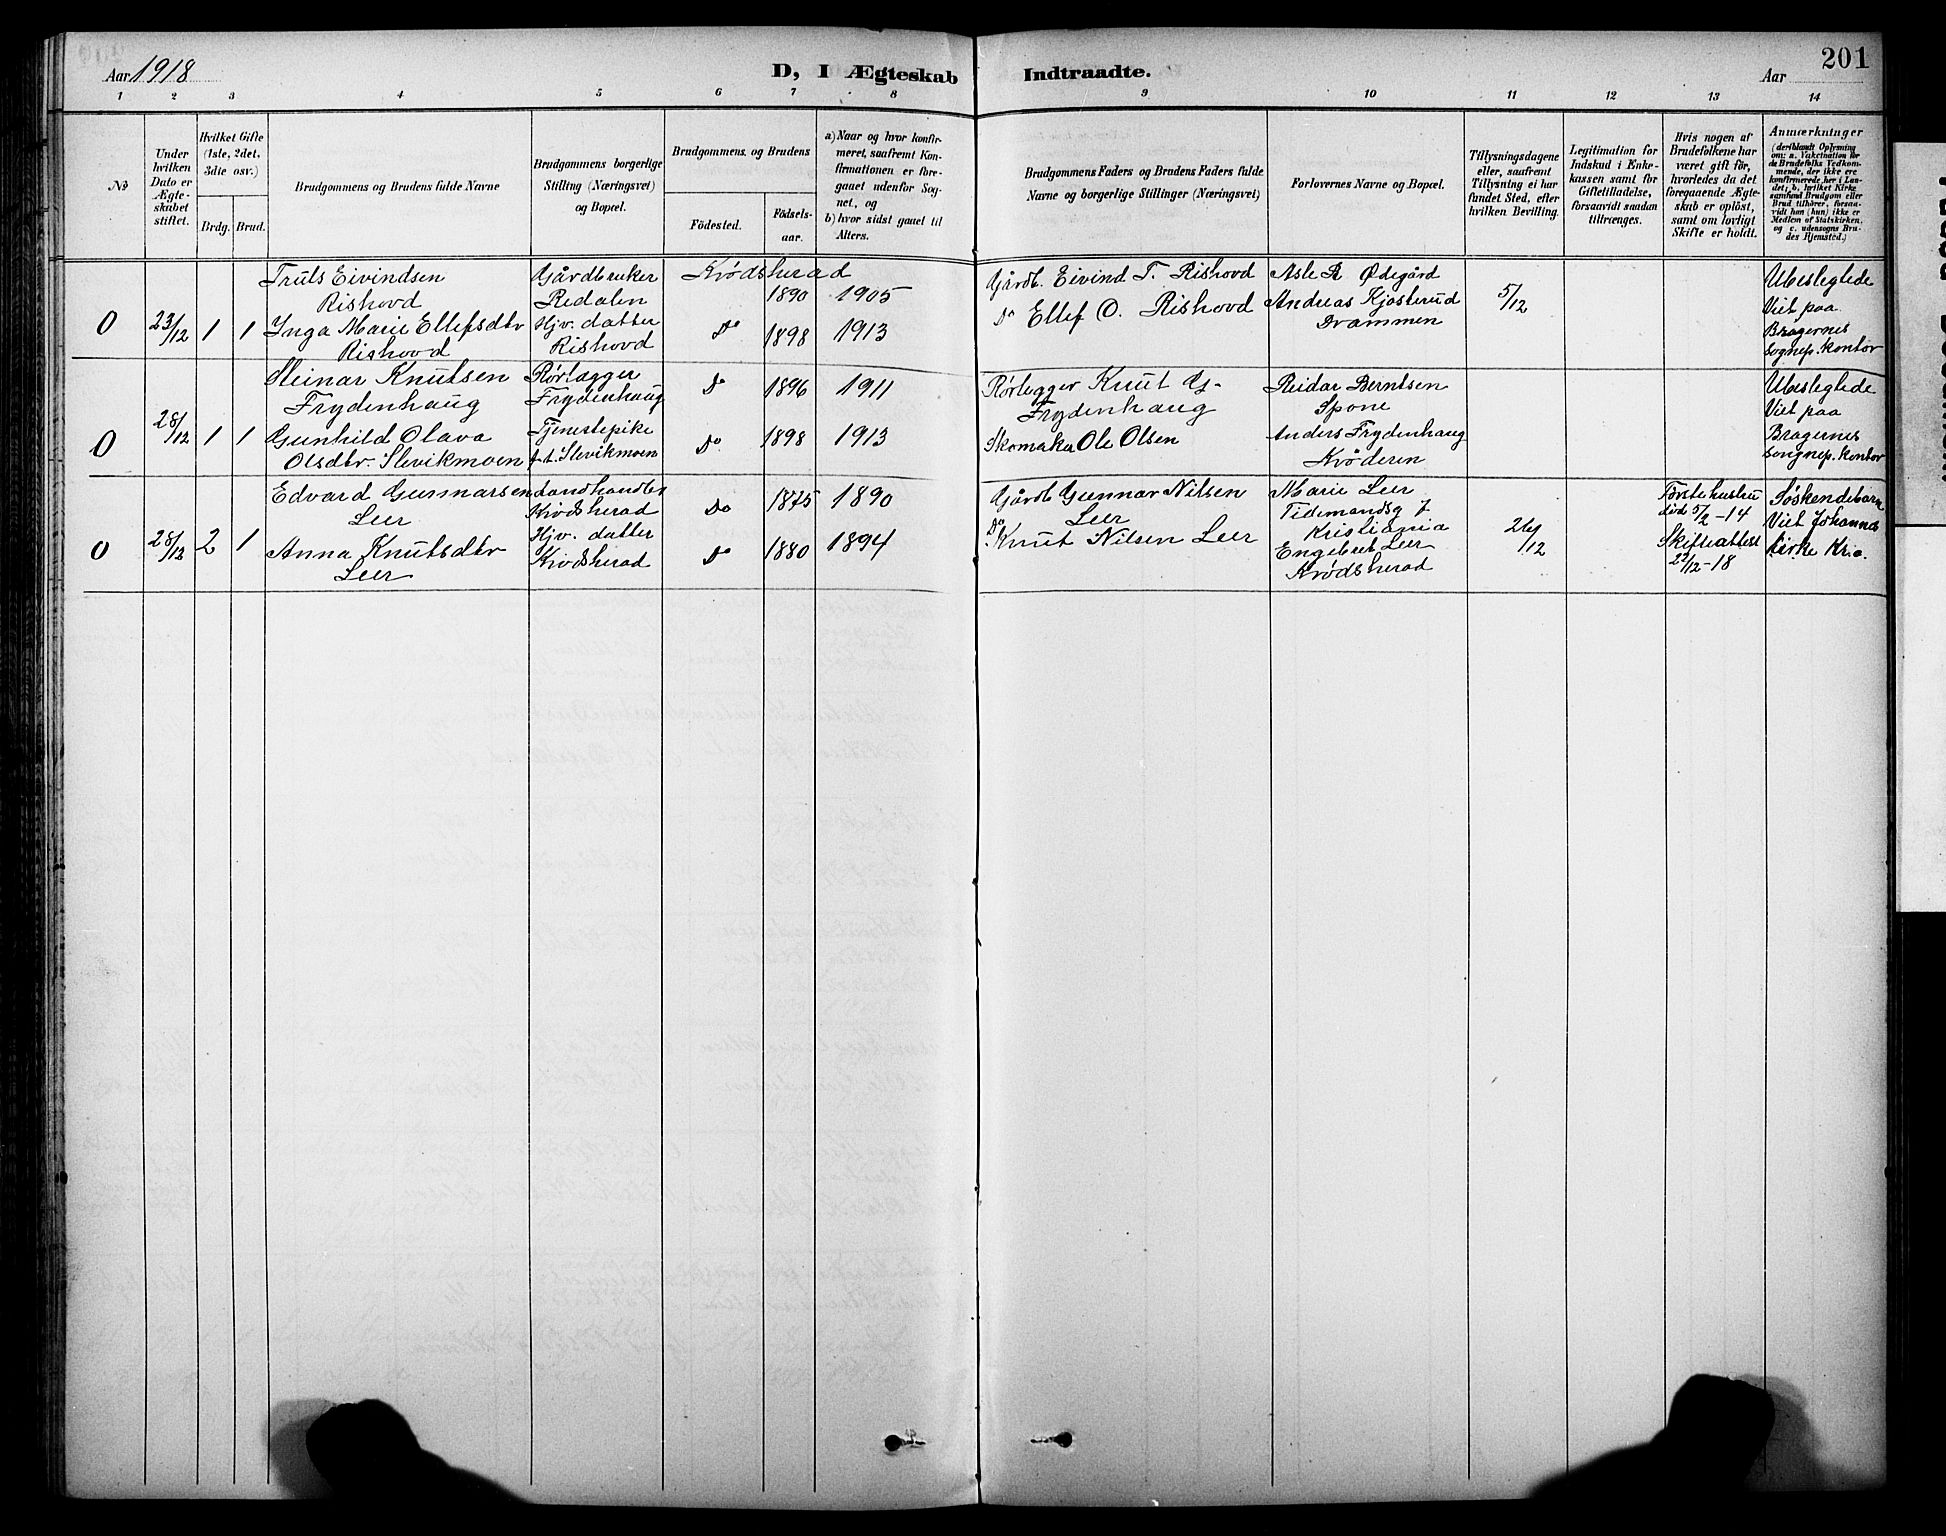 Aar 1918
D, I Ægteskab Indtraadte.
201
Aar
1 2 3 4 5 6 7 8 9 10 11 12 13 14
№
Under hvilken Dato er Ægteskabet stiftet.
Hvilket Gifte (1ste, 2det, 3die osv.)
Brdg. Brud.
Brudgommens og Brudens fulde Navne
Brudgommens borgerlige Stilling (Næringsvei) og Bopæl.
Brudgommens og Brudens
Födested.
Födselsaar.
a) Naar og hvor konfirmeret, saafremt Konfirmationen er foregaaet udenfor Sognet, og
b) hvor sidst gaaet til Alters.
Brudgommens Faders og Brudens Faders fulde Navne og borgerlige Stillinger (Næringsvei)
Forlovernes Navne og Bopæl.
Tillysningsdagene eller, saafremt Tillysning ei har fundet Sted, efter hvilken Bevilling.
Legitimation for Indskud i Enkekassen samt for Giftetilladelse, forsaavidt saadan tiltrænges.
Hvis nogen af Brudefolkene har været gift för, hvorledes da det foregaaende Ægteskab er oplöst, samt om lovligt Skifte er holdt.
Anmærkninger (deriblandt Oplysning om: a. Vakcination for de Brudefolks Vedkommende, der ikke ere konfirmerede her i Landet; b. hvilket Kirkesamfund Brudgom eller Brud tilhörer, forsaavidt han (hun) ikke er Medlem af Statskirken, og c. udensogns Brudes Hjemsted.)
0 23/12 1 1
Truls Eivindsen
Rishovd
Inga Marie Ellefsdtr
Rishovd
Gårdbruker
Redalen
Hjv. datter
Rishovd
Krødsherad
1890 1905
Do 1898 1913
Gårdb. Eivind T. Rishovd
Do Ellef O. Rishovd
Asle R Ødegård
Andreas Kjøsterud
Drammen
5/12
Ubeslegtede
Viet paa
Bragernes
sognep. kontor
0 28/12 1 1
Steinar Knutsen
Frydenhaug
Gunhild Olava
Olsdtr. Slevikmoen
Rørlægger
Frydenhaug
Tjenestepike
f.t. Slevikmoen
Do 1896 1911
Do. 1898 1913
Rørlegger Knut G.
Frydenhaug
Skomaker Ole Olsen
Reidar Berntsen
Spone
Anders Frydenhaug
Krøderen
Ubeslegtede
Viet paa
Bragernes
songnep. kontor
0 28/12 2 1
Edvard Gunnarsen
Leer
Anna Knutsdtr
Leer
Landhandler
Krødsherad
Hjv. datter
Krødsherad
Do 1875 1890
Do 1880 1894
Gårdb Gunnar Nilsen
Leer
Do. Knut Nilsen Leer
Marie Leer
Tidemandsg 7
Kristiania
Engebret Leer
Krødsherad
26/12
Første hustru
död 5/2-14
Skifteattest
22/12-18
Søskendebarn
Viet Johannes
kirke Kr.a.